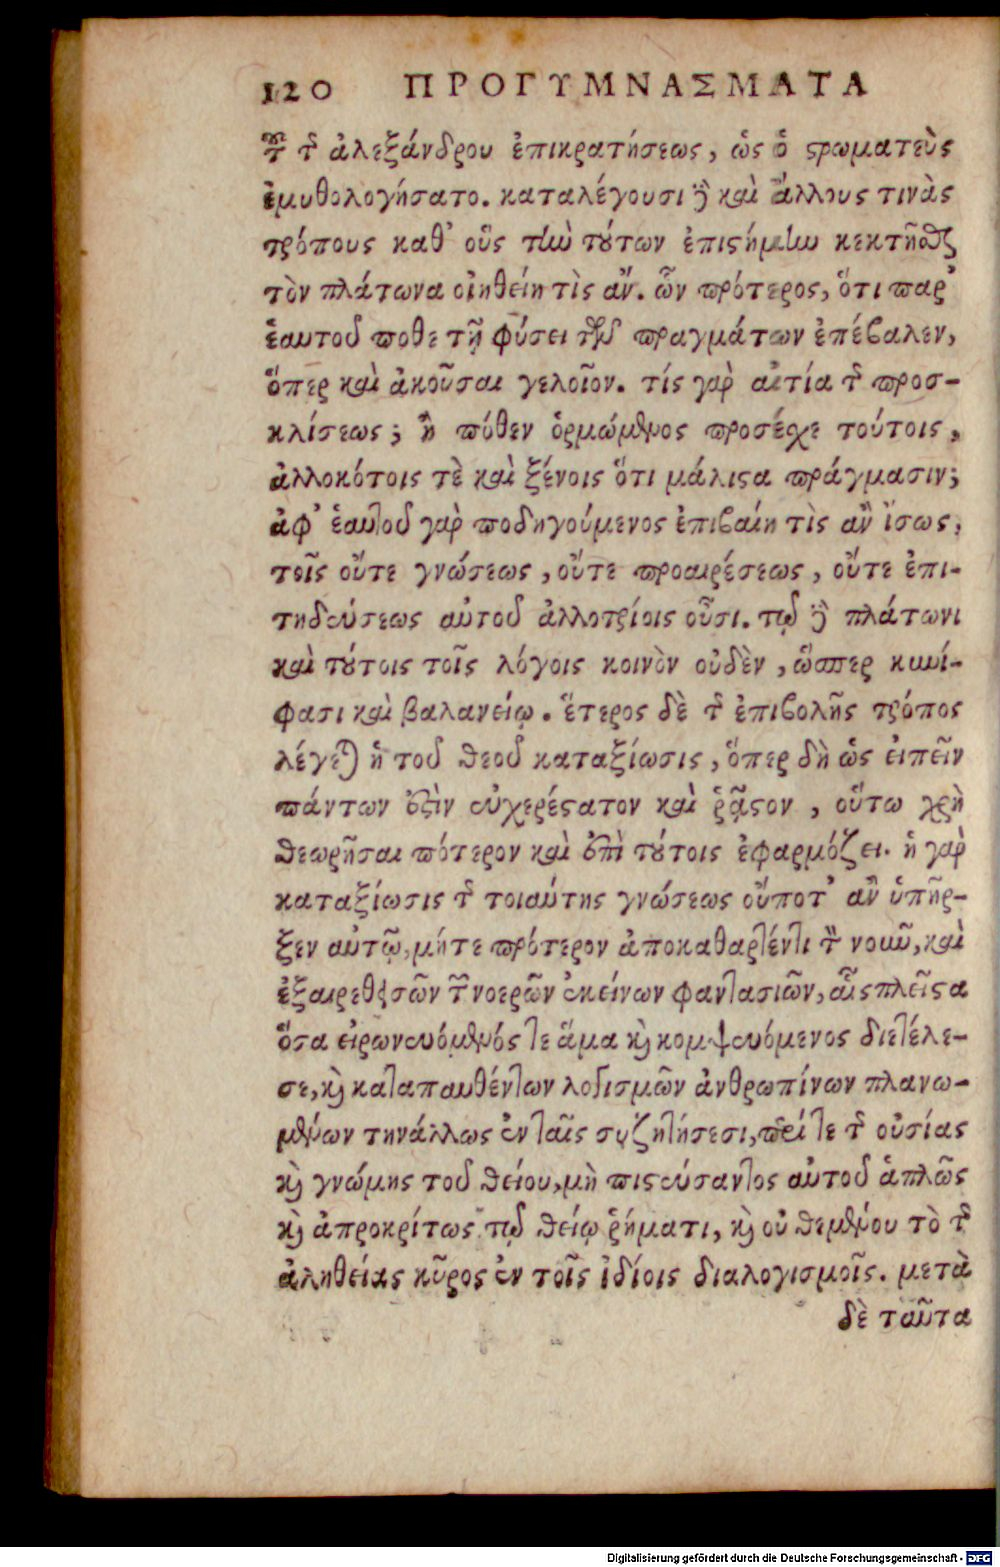 120 ΠΡΟΓΥΜΝΑΣΜΑΤΑ
τῆς τ῀ ἀλεξάνδρου ἐπικρατήσεως, ὡς ὁ ϛρωματεὺς
ἐμυθολογήσατο. καταλέγουσι ȣ̓͂ καὶ ἄλλους τινὰς
τρόπους καθ᾽ οὓς τὴν τούτων ἐπιϛήμην κεκτῆσθαι
τὸν πλάτωνα οἰηθείη τὶς ἄν. ὧν πρότερος, ὅτι παρ᾽
ἑαυτοῦ ποθε τῇ φύσει τῶν πραγμάτων ἐπέβαλεν,
ὅπερ καὶ ἀκοῦσαι γελοῖον. τίς γὰρ αἰτία τῆς προσ-
κλίσεως; ἢ πόθεν ὁρμώμενος προσέχε τούτοις,
ἀλλοκότοις τὲ καὶ ξένοις ὅτι μάλιϛα πράγμασιν;
ἀφ᾽ ἑαυτοῦ γὰρ ποδηγούμενος ἐπιβαίη τὶς ἂν ἴσως,
τοῖς οὔτε γνώσεως, οὔτε προαιρέσεως, οὔτε ἐπι-
τηδεύσεως αὐτοῦ ἀλλοτρίοις οὖσι. τῷ δὲ πλάτωνι
καὶ τούτοις τοῖς λόγοις κοινὸν οὐδὲν, ὥσπερ κυνί-
φασι καὶ βαλανείῳ. ἕτερος δὲ τῆς ἐπιβολῆς τρόπος
λέγεται ἡ τοῦ θεοῦ καταξίωσις, ὅπερ δὴ ὡς εἰπεῖν
πάντων ἐϛὶν εὐχερέϛατον καὶ ῥᾷϛον, οὕτω χρὴ
θεωρῆσαι πότερον καὶ ἐπὶ τούτοις ἐφαρμόζει. ἡ γὰρ
καταξίωσις τῆς τοιαύτης γνώσεως οὔποτ᾽ ἂν ὑπῆρ-
ξεν αὐτῷ, μήτε πρότερον ἀποκαθαρτέντι τὸν νοῦν, καὶ
ἐξαιρεθεισῶν τῶν νοερῶν ἐκείνων φαντασιῶν, αἷς πλεῖϛα
ὅσα εἰρωνευόμενός τε ἅμα καὶ κομψευόμενος διετέλε-
σε, καὶ καταπαυθέντων λογισμῶν ἀνθρωπίνων πλανω-
μένων τηνάλλως ἐν ταῖς συζητήσεσι, περί τε τῆς οὐσίας
καὶ γνώμης τοῦ θείου, μὴ πιϛεύσαντος αὐτοῦ ἁπλῶς
καὶ ἀπροκρίτως τῷ θείῳ ῥήματι, καὶ οὐ θεμένου τὸ τῆς
ἀληθείας κῦρος ἐν τοῖς ἰδίοις διαλογισμοῖς. μετὰ
δὲ ταῦτα
Digitalisierung gefördert durch die Deutsche Forschungsgemeinschaft - DFG